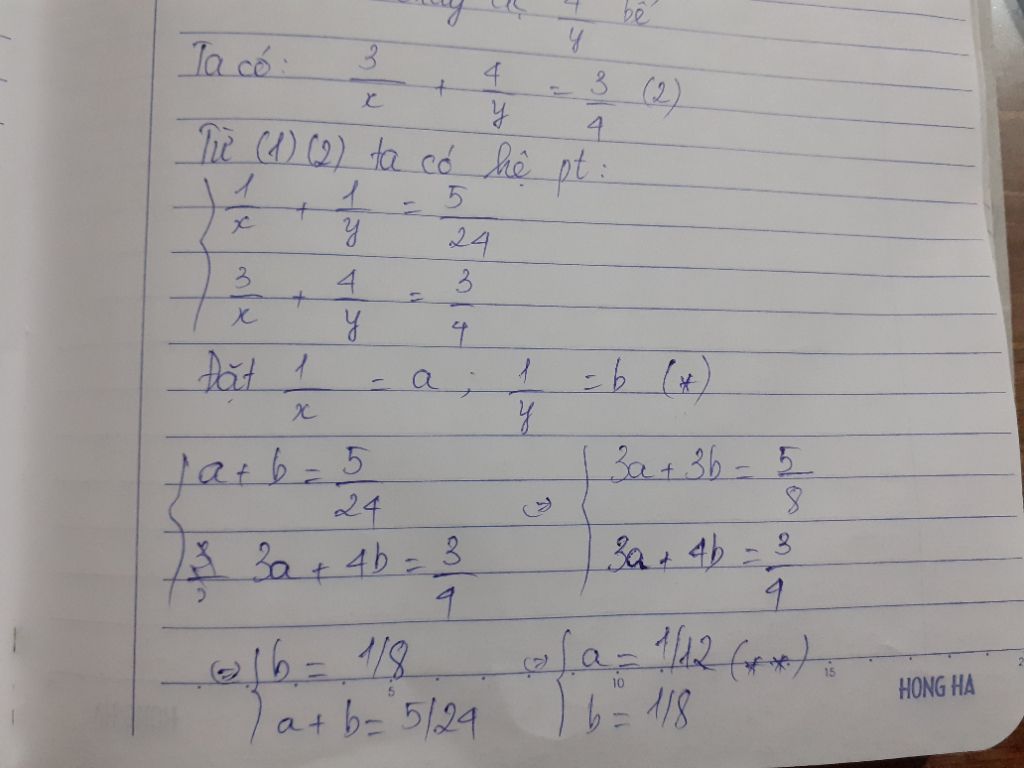 4/y bể
Ta có: 3/x + 4/y = 3/4 (2)
Từ (1) (2) ta có hệ pt:
1/x + 1/y = 5/24
3/x + 4/y = 3/4
Đặt 1/x = a ; 1/y = b (*)
{ a + b = 5/24 ⇔ { 3a + 3b = 5/8
3a + 4b = 3/4 3a + 4b = 3/4
⇔ { b = 1/8 ⇔ { a = 1/12 (**)
a + b = 5/24 b = 1/8
5 10 15
HONG HA